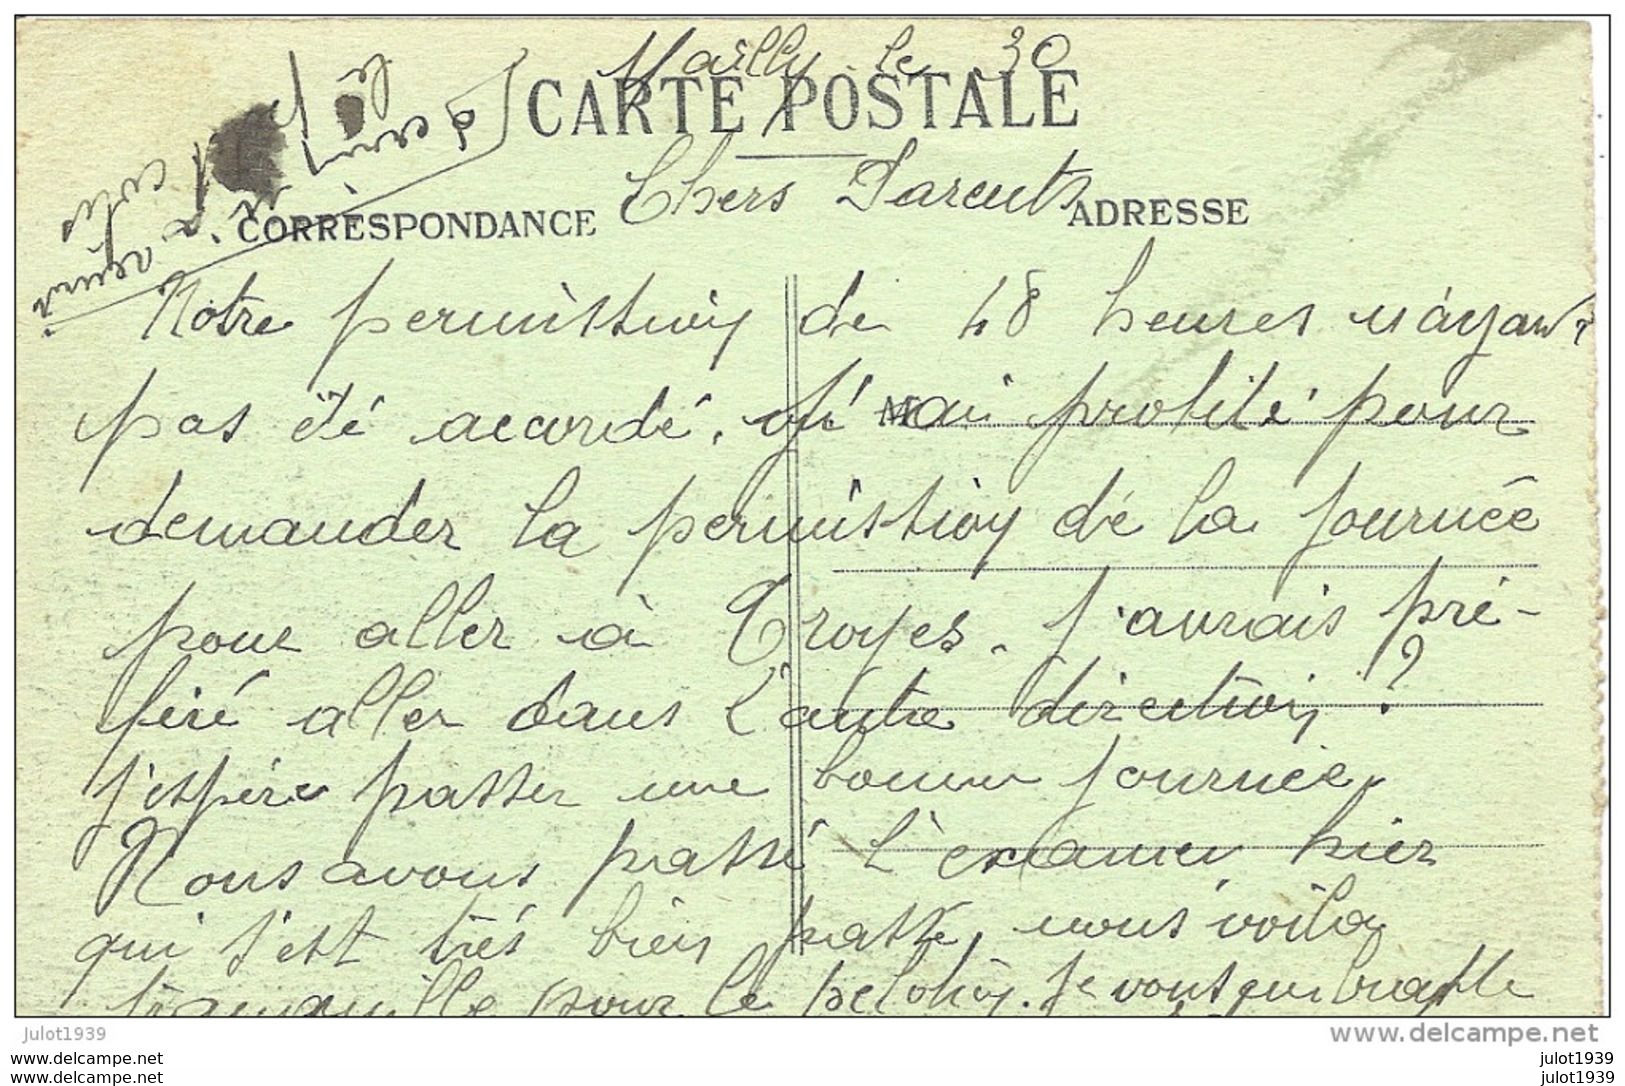 Mailly le 30
CARTE POSTALE
Chers Parents
CORRESPONDANCE ADRESSE
Notre permission de 48 heures n'ayant
pas été accordé. j'ai profité pour
M
demander la permission de la journée
pour aller à Troyes. J'aurais pré-
féré aller dans l'autre direction ?
j'espère passer une bonne journée.
Nous avons passé l'examen hier
qui s'est très bien passé, nous voilà
tranquille pour le peloton. Je vous
julot1939
www.delcampe.com
www.delcampe.com
www.delcampe.net
julot1939
julot1939